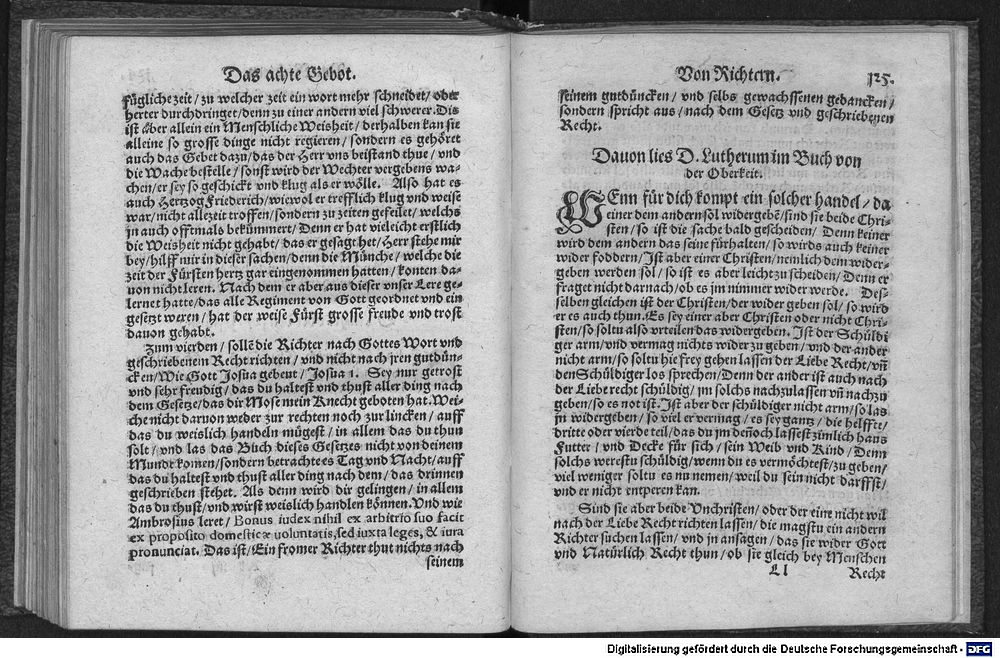 Das achte Gebot.
fügliche zeit / zu welcher zeit ein wort mehr schneidet / oder
herter durchdringet / denn zu einer andern viel schwerer. Dis
ist aber allein ein Menschliche Weisheit / derhalben kan sie
alleine so grosse dinge nicht regieren / sondern es gehöret
auch das Gebet dazu / das der Herr vns beistand thue / vnd
die Wache bestelle / sonst wird der Wechter vergebens wa-
chen / er sey so geschickt vnd klug als er wölle. Also hat es
auch Hertzog Friederich / wiewol er trefflich klug vnd weise
war / nicht allezeit troffen / sondern zu zeiten gefeilet / welchs
jn auch offtmals bekümmert / Denn er hat vieleicht erstlich
die Weisheit nicht gehabt / das er gesagt het / Herr stehe mir
bey / hilff mir in dieser sachen / denn die Münche / welche die
zeit der Fürsten hertz gar eingenommen hatten / konten da-
uon nicht leren. Nach dem er aber aus dieser vnser Lere ge-
lernet hatte / das alle Regiment von Gott geordnet vnd ein
gesetzt weren / hat der weise Fürst grosse freude vnd trost
dauon gehabt.
Zum vierden / solle̅ die Richter nach Gottes Wort vnd
geschriebenem Recht richten / vnd nicht nach jren gutdün-
cken / Wie Gott Josua gebeut / Josua 1. Sey nur getrost
vnd sehr freudig / das du haltest vnd thust aller ding nach
dem Gesetze / das dir Mose mein Knecht geboten hat. Wei-
che nicht daruon weder zur rechten noch zur lincken / auff
das du weislich handeln mügest / in allem das du thun
solt / vnd las das Buch dieses Gesetzes nicht von deinem
Mundt komen / sondern betrachte es Tag vnd Nacht / auff
das du haltest vnd thust aller ding nach dem / das drinnen
geschrieben stehet. Als denn wird dir gelingen / in allem
das du thust / vnd wirst weislich handlen können. Vnd wie
Ambrosius leret / Bonus iudex nihil ex arbitrio suo facit
ex proposito domesticæ voluntatis, sed iuxta leges, & iura
pronunciat. Das ist / Ein fromer Richter thut nichts nach
seinem
Von Richtern.
125.
seinem gutdüncken / vnd selbs gewachssenen gedancken /
sondern spricht aus / nach dem Gesetz vnd geschriebenen
Recht.
Dauon lies D. Lutherum im Buch von
der Oberkeit.
WEnn für dich kompt ein solcher handel / da
einer dem andern sol widergebe̅ / sind sie beide Chri-
sten / so ist die sache bald gescheiden / Denn keiner
wird dem andern das seine fürhalten / so wirds auch keiner
wider foddern / Ist aber einer Christen / nemlich dem wider-
geben werden sol / so ist es aber leicht zu scheiden / Denn er
fraget nicht darnach / ob es jm nimmer wider werde. Des-
selben gleichen ist der Christen / der wider geben sol / so wird
er es auch thun. Es sey einer aber Christen oder nicht Chri-
sten / so soltu also vrteilen das widergeben. Ist der Schüldi
ger arm / vnd vermag nichts wider zu geben / vnd der ander
nicht arm / so soltu hie frey gehen lassen der Liebe Recht / vn̅
den Schüldiger los sprechen / Denn der ander ist auch nach
der Liebe recht schüldig / jm solchs nachzulassen vn̅ nach zu
geben / so es not ist. Ist aber der schüldiger nicht arm / so las
jn widergeben / so viel er vermag / es sey gantz / die helffte /
dritte oder vierde teil / das du jm de̅noch lassest zimlich haus
Futter / vnd Decke für sich / sein Weib vnd Kind / Denn
solchs werestu schüldig / wenn du es vermöchtest / zu geben /
viel weniger soltu es nu nemen / weil du sein nicht darffst /
vnd er nicht entperen kan.
Sind sie aber beide Vnchristen / oder der eine nicht wil
nach der Liebe Recht richten lassen / die magstu ein andern
Richter suchen lassen / vnd jn ansagen / das sie wider Gott
vnd Natürlich Recht thun / ob sie gleich bey Menschen
Ll
Recht
Digitalisierung gefördert durch die Deutsche Forschungsgemeinschaft - DFG